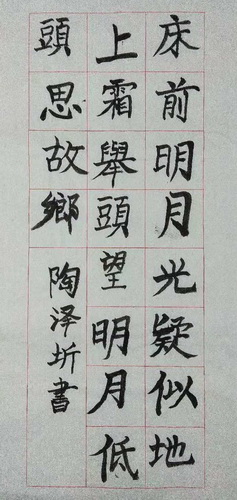 床前明月光疑似地
上霜舉頭望明月低
頭思故鄉
陶泽圻書